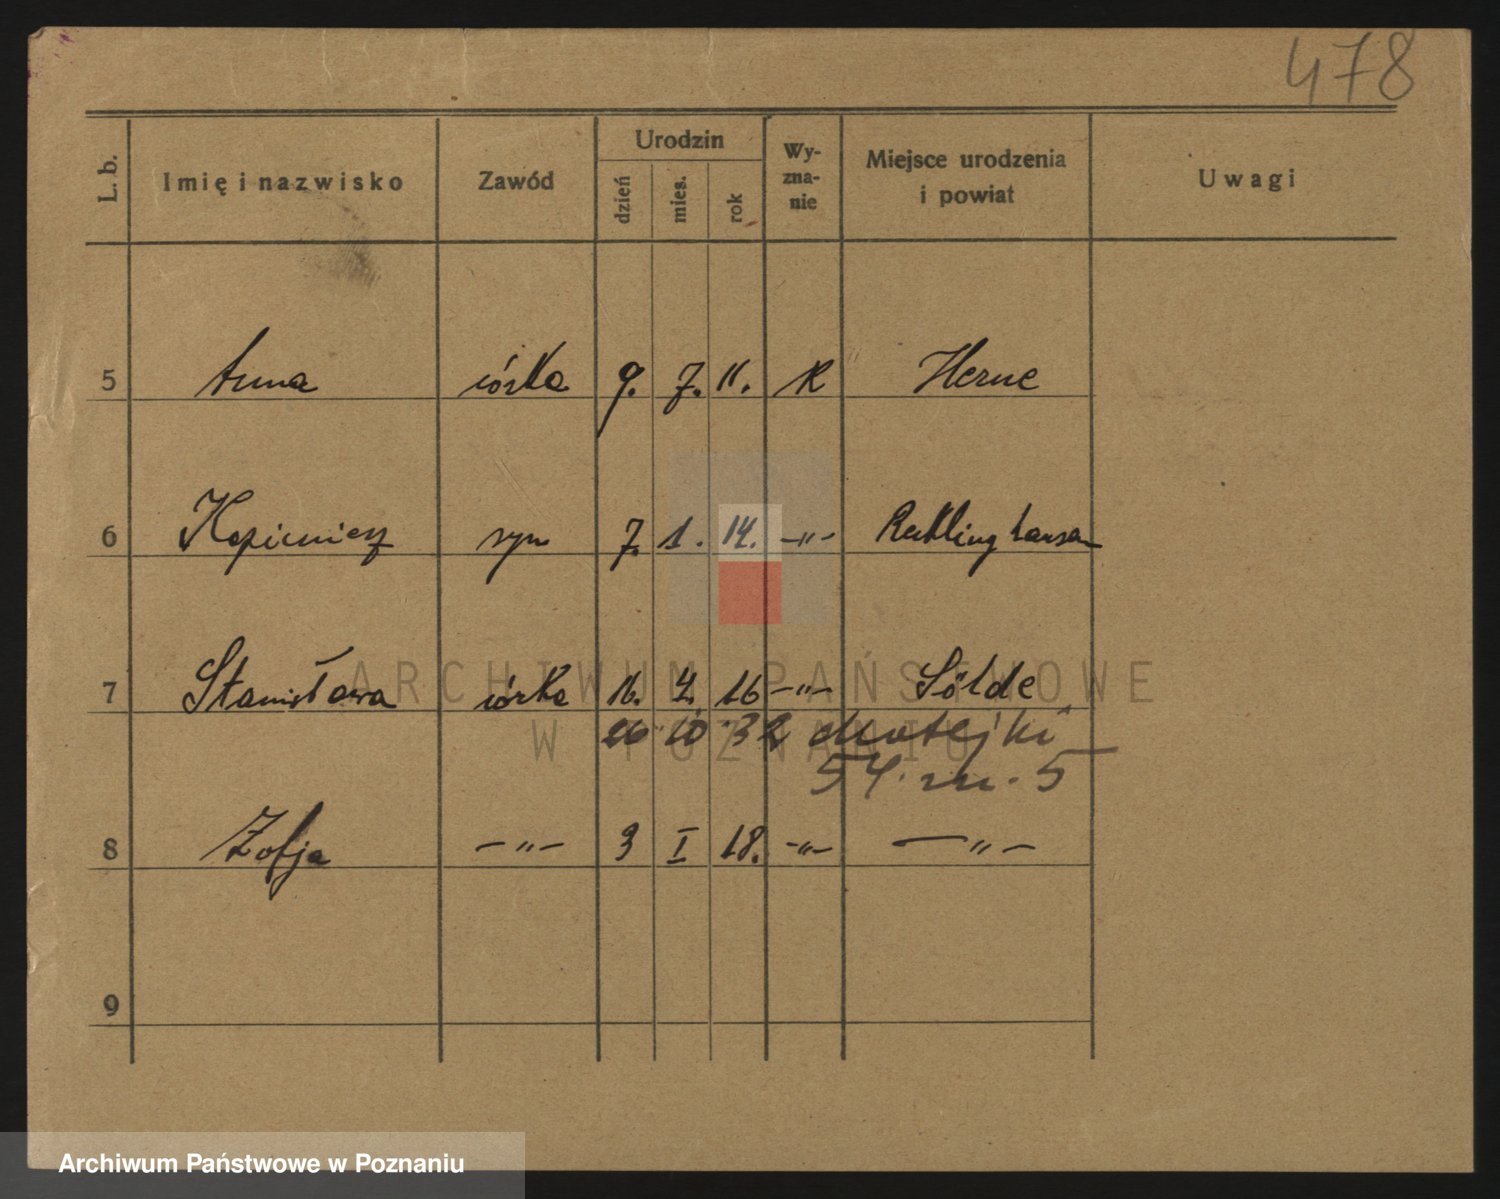 478
L. b. Imię i nazwisko Zawód Urodzin dzień mies. rok Wy-zna-nie Miejsce urodzenia i powiat Uwagi
5 Anna córka 9. 7. 11. R Herne
6 Kazimierz syn 7. 1. 14. -"- Recklinghausen
7 Stanisława córka 16. 4. 16 -"- Sölde
26 10 32 Matejki
54. m. 5
8 Zofja -"- 3 I 18. -"- -"-
9
ARCHIWUM PAŃSTWOWE
W POZNANIU
Archiwum Państwowe w Poznaniu